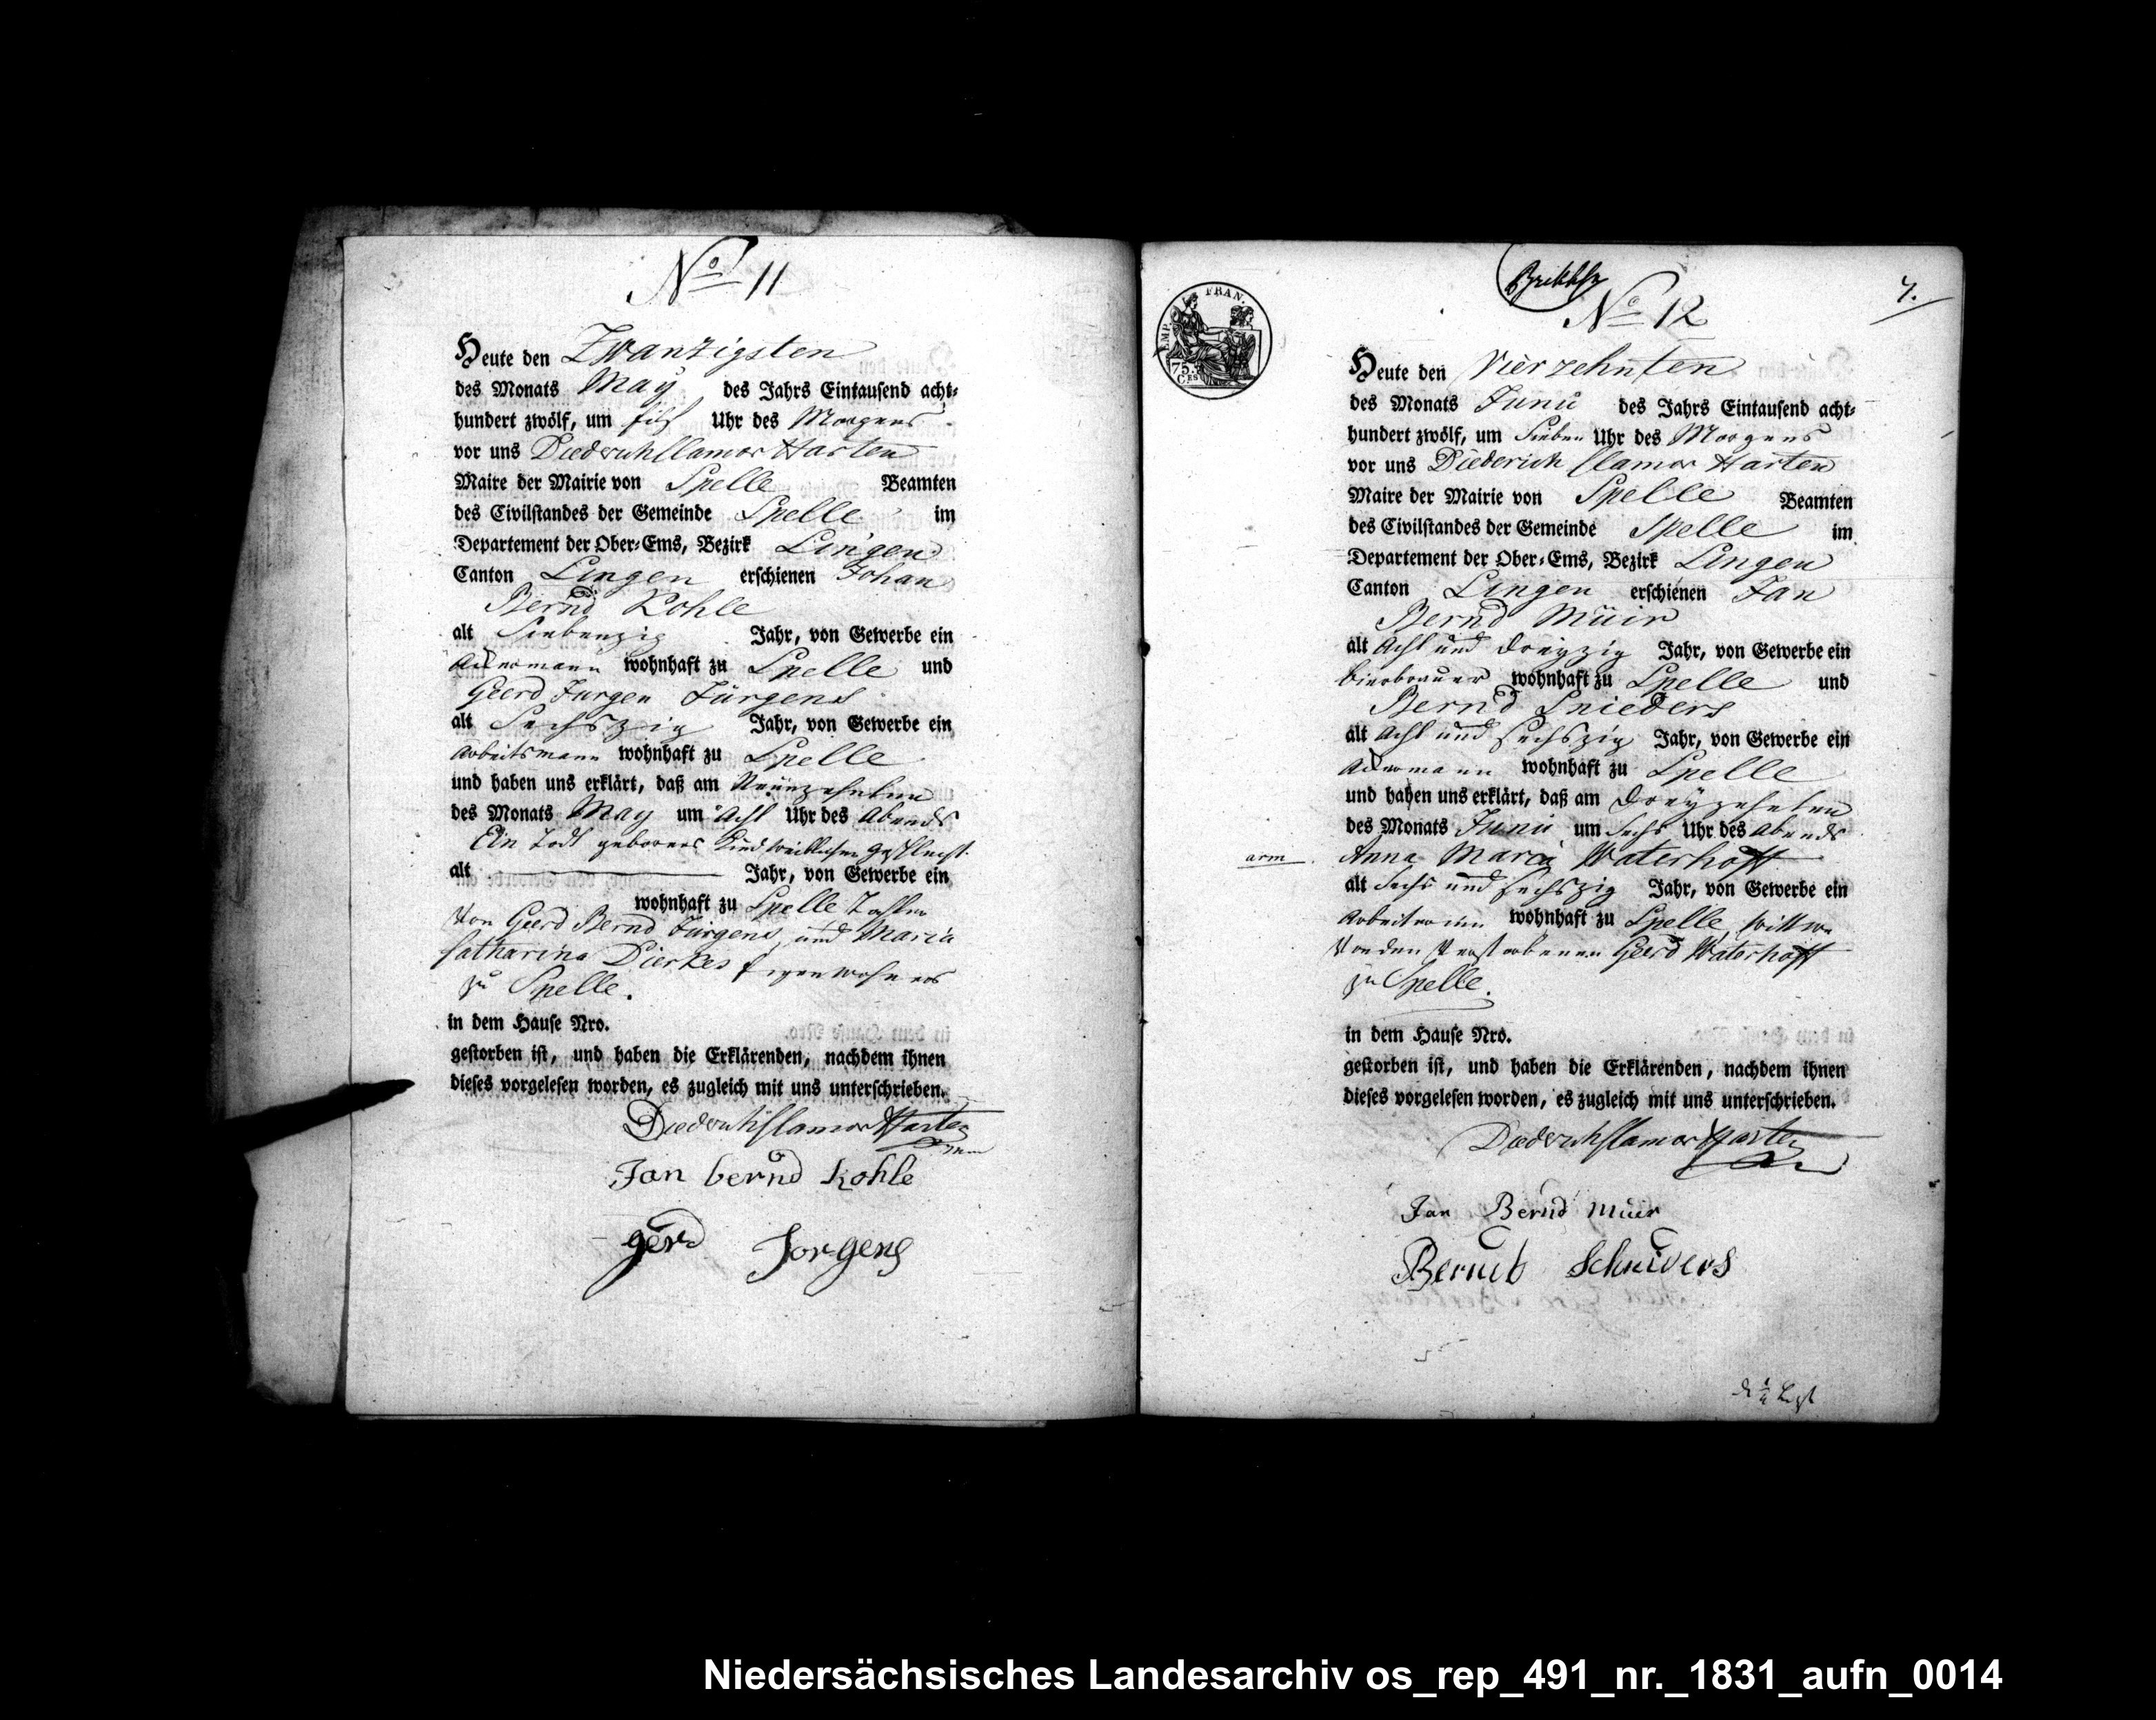 No 11
Heute den Zwanzigsten
des Monats May des Jahrs Eintausend acht-
hundert zwölf, um Uhr des Morgens
vor uns Diederich Clamor Harten
Maire der Mairie von Spelle Beamten
des Civilstandes der Gemeinde Spelle im
Departement der Ober-Ems, Bezirk Lingen
Canton Lingen erschienen Johan
Bernd Kohle
alt Siebenzig Jahr, von Gewerbe ein
Ackermann wohnhaft zu Spelle und
Geerd Jurgen Jürgens
alt Sechszig Jahr, von Gewerbe ein
Arbeitsmann wohnhaft zu Spelle
und haben uns erklärt, daß am Neunzehnten
des Monats May um Acht Uhr des Abends
Ein todt geborenes Kind weiblichen Geschlecht.
alt Jahr, von Gewerbe ein
wohnhaft zu Spelle Tochter
Von Geerd Bernd Jürgens, und Maria
Catharina Dierkes
zu Spelle.
in dem Hause Nro.
gestorben ist, und haben die Erklärenden, nachdem ihnen
dieses vorgelesen worden, es zugleich mit uns unterschrieben.
Diederich Clamor Harten
Jan bernd Kohle
gerd Jorgens
EMP. FRAN.
75. Ces
No 12
7.
Heute den Vierzehnten
des Monats Junii des Jahrs Eintausend acht-
hundert zwölf, um Sieben Uhr des Morgens
vor uns Diederich Clamor Harten
Maire der Mairie von Spelle Beamten
des Civilstandes der Gemeinde Spelle im
Departement der Ober-Ems, Bezirk Lingen
Canton Lingen erschienen Jan
Bernd Müir
alt Acht und dreyzig Jahr, von Gewerbe ein
bierbrauer wohnhaft zu Spelle und
Bernd Snieders
alt Acht und sechszig Jahr, von Gewerbe ein
Ackermann wohnhaft zu Spelle
und haben uns erklärt, daß am dreyzehnten
des Monats Junii um sechs Uhr des Abends
arm Anna Maria Waterhoff
alt sechs und sechszig Jahr, von Gewerbe ein
Arbeiterinn wohnhaft zu Spelle, Wittwe
Von den Verstorbenen Geerd Waterhoff
zu Spelle.
in dem Hause Nro.
gestorben ist, und haben die Erklärenden, nachdem ihnen
dieses vorgelesen worden, es zugleich mit uns unterschrieben.
Diederich Clamor Harten
Jan Bernd Müer
Bernd Schnivers
Niedersächsisches Landesarchiv os_rep_491_nr._1831_aufn_0014